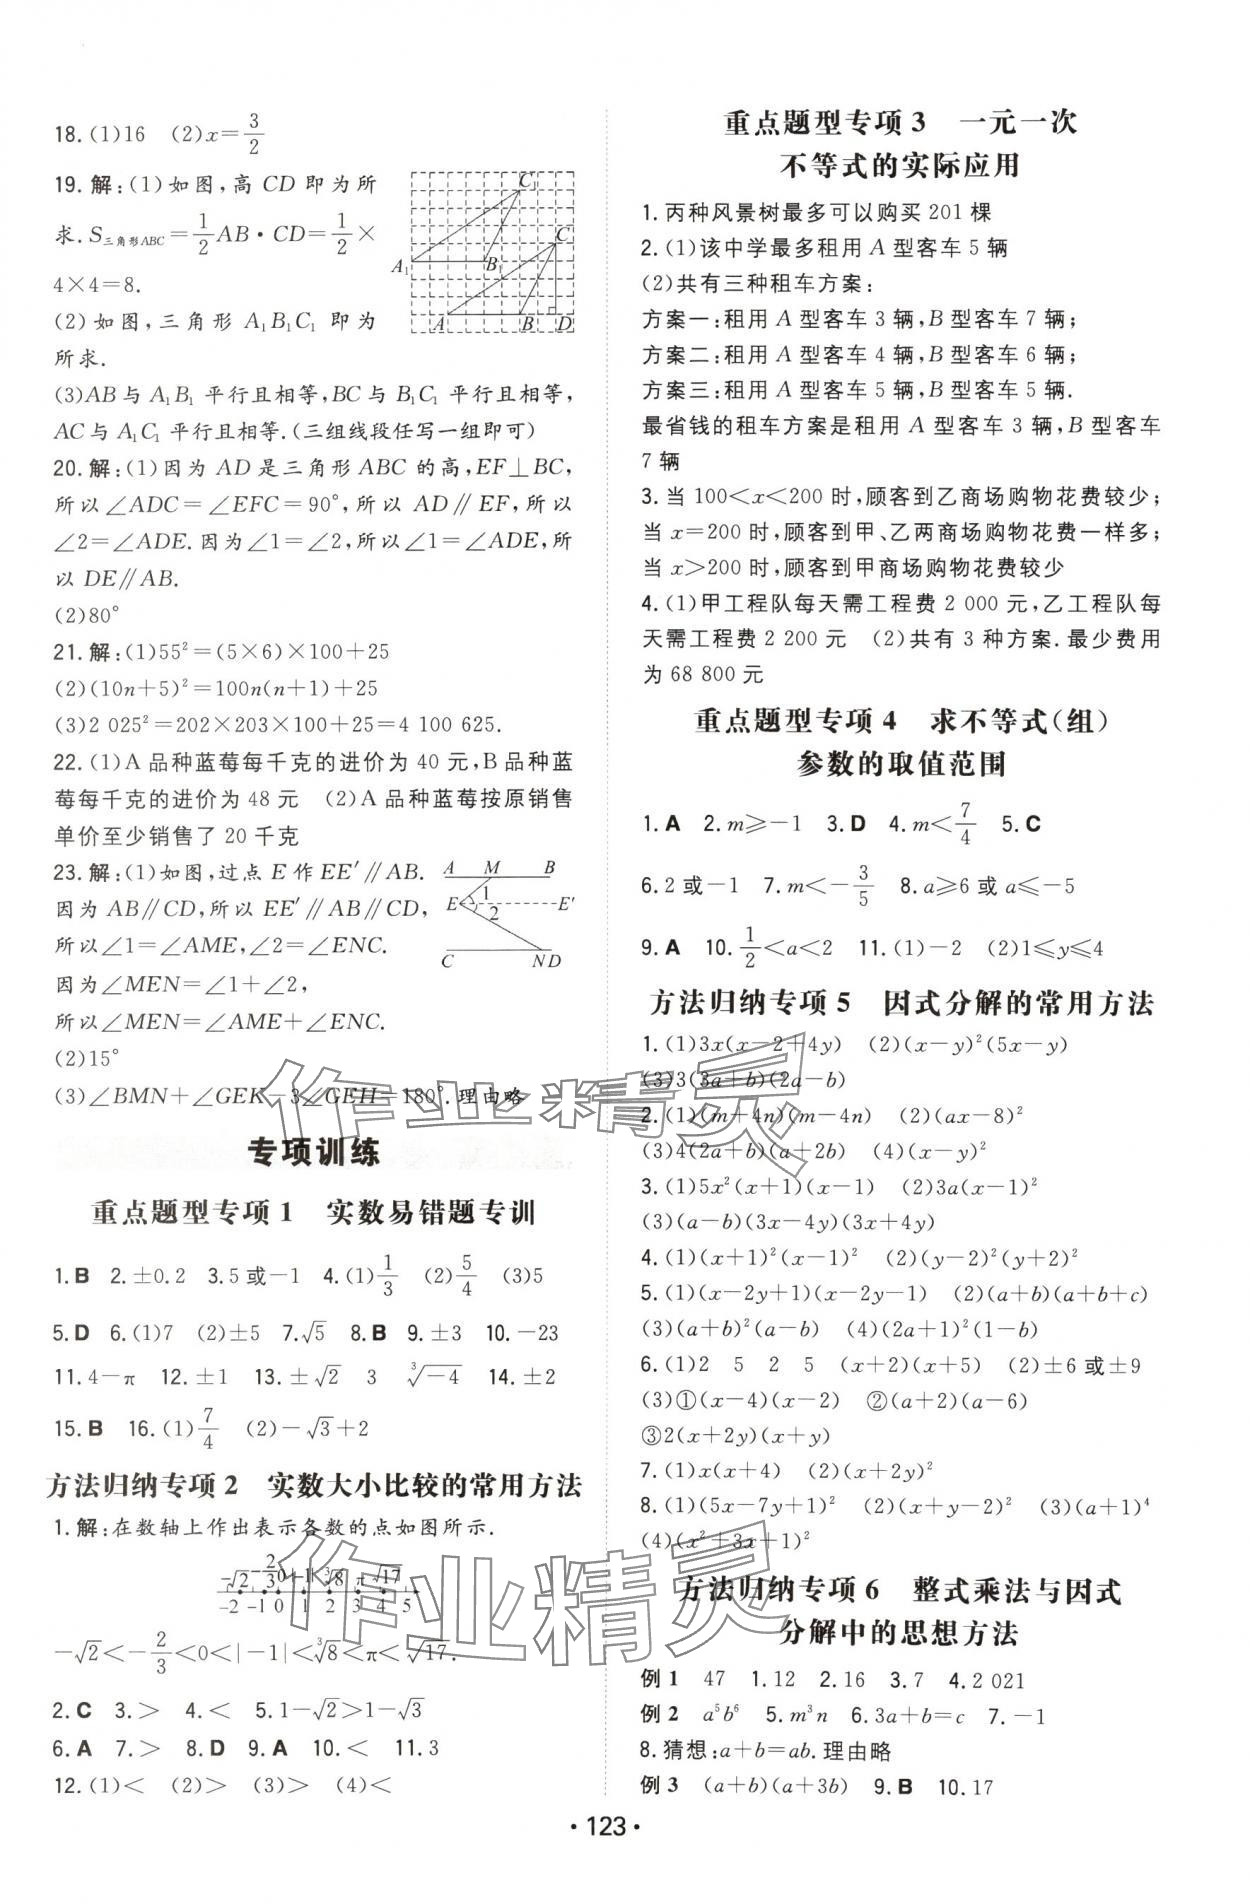 18.(1)16 (2)x=3/2
19.解:(1)如图,高 CD 即为所
求.S三角形ABC=1/2AB·CD=1/2×
4×4=8.
(2)如图,三角形 A₁B₁C₁ 即为
所求.
C₁
C
A₁
B₁
A
B
D
(3)AB与 A₁B₁ 平行且相等,BC与 B₁C₁ 平行且相等,
AC与 A₁C₁ 平行且相等.(三组线段任写一组即可)
20.解:(1)因为 AD 是三角形 ABC 的高,EF⊥BC,
所以∠ADC=∠EFC=90°,所以 AD∥EF,所以
∠2=∠ADE.因为∠1=∠2,所以∠1=∠ADE,所
以 DE∥AB.
(2)80°
21.解:(1)55²=(5×6)×100+25
(2)(10n+5)²=100n(n+1)+25
(3)2 025²=202×203×100+25=4 100 625.
22.(1)A 品种蓝莓每千克的进价为 40 元,B 品种蓝
莓每千克的进价为 48 元 (2)A 品种蓝莓按原销售
单价至少销售了 20 千克
23.解:(1)如图,过点 E 作 EE′∥AB.
因为 AB∥CD,所以 EE′∥AB∥CD,
所以∠1=∠AME,∠2=∠ENC.
因为∠MEN=∠1+∠2,
所以∠MEN=∠AME+∠ENC.
A M B
1
E E′
2
C N D
(2)15°
(3)∠BMN+∠GEK-3∠GEH=180°.理由略
专项训练
重点题型专项 1 实数易错题专训
1.B 2.±0.2 3.5 或-1 4.(1)1/3 (2)5/4 (3)5
5.D 6.(1)7 (2)±5 7.√5 8.B 9.±3 10.-23
11.4-π 12.±1 13.±√2 3 ∛-4 14.±2
15.B 16.(1)7/4 (2)-√3+2
方法归纳专项 2 实数大小比较的常用方法
1.解:在数轴上作出表示各数的点如图所示.
-√2 -2/3 0 |-1| ∛8 π √17
-2 -1 0 1 2 3 4 5
-√2<-2/3<0<|-1|<∛8<π<√17.
2.C 3.> 4.< 5.1-√2>1-√3
6.A 7.> 8.D 9.A 10.< 11.3
12.(1)< (2)> (3)> (4)<
重点题型专项 3 一元一次
不等式的实际应用
1.丙种风景树最多可以购买 201 棵
2.(1)该中学最多租用 A 型客车 5 辆
(2)共有三种租车方案:
方案一:租用 A 型客车 3 辆,B 型客车 7 辆;
方案二:租用 A 型客车 4 辆,B 型客车 6 辆;
方案三:租用 A 型客车 5 辆,B 型客车 5 辆.
最省钱的租车方案是租用 A 型客车 3 辆,B 型客车
7 辆
3.当 100<x<200 时,顾客到乙商场购物花费较少;
当 x=200 时,顾客到甲、乙两商场购物花费一样多;
当 x>200 时,顾客到甲商场购物花费较少
4.(1)甲工程队每天需工程费 2 000 元,乙工程队每
天需工程费 2 200 元 (2)共有 3 种方案.最少费用
为 68 800 元
重点题型专项 4 求不等式(组)
参数的取值范围
1.A 2.m≥-1 3.D 4.m<7/4 5.C
6.2 或-1 7.m<-3/5 8.a≥6 或 a≤-5
9.A 10.1/2<a<2 11.(1)-2 (2)1≤y≤4
方法归纳专项 5 因式分解的常用方法
1.(1)3x(x-2+4y) (2)(x-y)²(5x-y)
(3)3(3a+b)(2a-b)
2.(1)(m+4n)(m-4n) (2)(ax-8)²
(3)4(2a+b)(a+2b) (4)(x-y)²
3.(1)5x²(x+1)(x-1) (2)3a(x-1)²
(3)(a-b)(3x-4y)(3x+4y)
4.(1)(x+1)²(x-1)² (2)(y-2)²(y+2)²
5.(1)(x-2y+1)(x-2y-1) (2)(a+b)(a+b+c)
(3)(a+b)²(a-b) (4)(2a+1)²(1-b)
6.(1)2 5 2 5 (x+2)(x+5) (2)±6 或±9
(3)①(x-4)(x-2) ②(a+2)(a-6)
③2(x+2y)(x+y)
7.(1)x(x+4) (2)(x+2y)²
8.(1)(5x-7y+1)² (2)(x+y-2)² (3)(a+1)⁴
(4)(x²+3x+1)²
方法归纳专项 6 整式乘法与因式
分解中的思想方法
例 1 47 1.12 2.16 3.7 4.2 021
例 2 a⁵b⁶ 5.m³n 6.3a+b=c 7.-1
8.猜想:a+b=ab.理由略
例 3 (a+b)(a+3b) 9.B 10.17
·123·
作业精灵
作业精灵